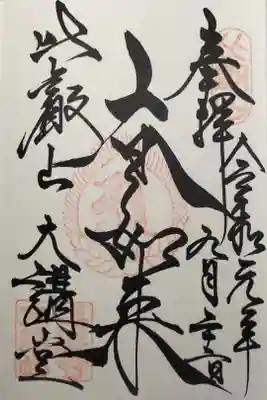 奉拝
令和元年
九月
大日如来
比叡山
大講堂